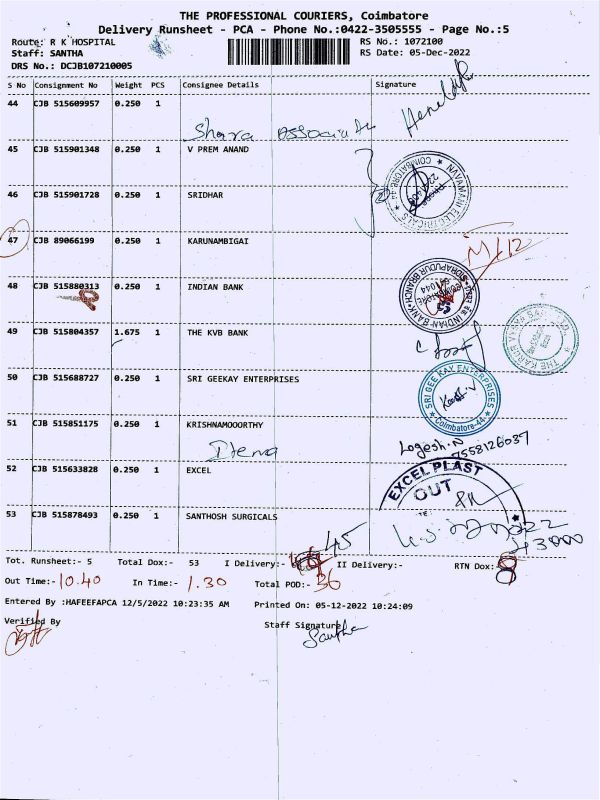 THE PROFESSIONAL COURIERS, Coimbatore
Delivery Runsheet - PCA - Phone No.:0422-3505555 - Page No.:5
Route: R K HOSPITAL
RS No.: 1072100
Staff: SANTHA
RS Date: 05-Dec-2022
DRS No.: DCJB107210005
S No Consignment No Weight PCS Consignee Details Signature
44 CJB 515609957 0.250 1
Shara Associate
45 CJB 515901348 0.250 1 V PREM ANAND
NAVAMANI ELECTRICALS
COIMBATORE-44
46 CJB 515901728 0.250 1 SRIDHAR
47 CJB 89066199 0.250 1 KARUNAMBIGAI
48 CJB 515880313 0.250 1 INDIAN BANK
INDIAN BANK
49 CJB 515804357 1.675 1 THE KVB BANK
50 CJB 515688727 0.250 1 SRI GEEKAY ENTERPRISES
SRI GEE KAY ENTERPRISES
Coimbatore-44
51 CJB 515851175 0.250 1 KRISHNAMOOORTHY
Logesh.N
7558126037
52 CJB 515633828 0.250 1 EXCEL
EXCEL PLAST
OUT
53 CJB 515878493 0.250 1 SANTHOSH SURGICALS
43000
Tot. Runsheet:- 5 Total Dox:- 53 I Delivery:- 45 II Delivery:- RTN Dox:- 8
Out Time:- 10.40 In Time:- 1.30 Total POD:- 36
Entered By :HAFEEFAPCA 12/5/2022 10:23:35 AM Printed On: 05-12-2022 10:24:09
Verified By
Staff Signature
Santha